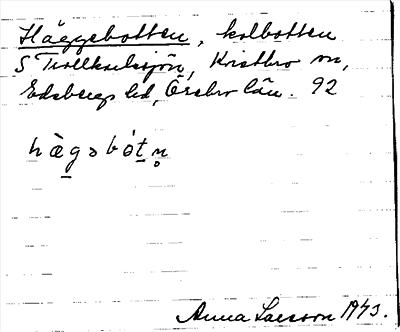 Häggebotten, kolbotten
S Trollkarlssjön, Kvistbro sn,
Edsbergs hd, Örebro län. 92
hàgəbòtn̥
Anna Larsson 1943.